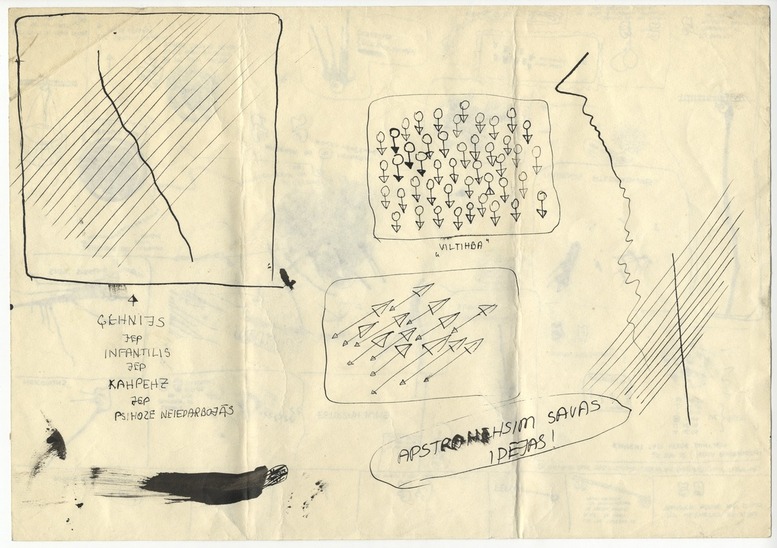 ĢEHNIJS
JEP
INFANTILIS
JEP
KAHPEHZ
JEP
PSIHOZE NEIEDARBOJĀS
„VILTIHBA"
APSTRAHEHSIM SAVAS
IDEJAS!